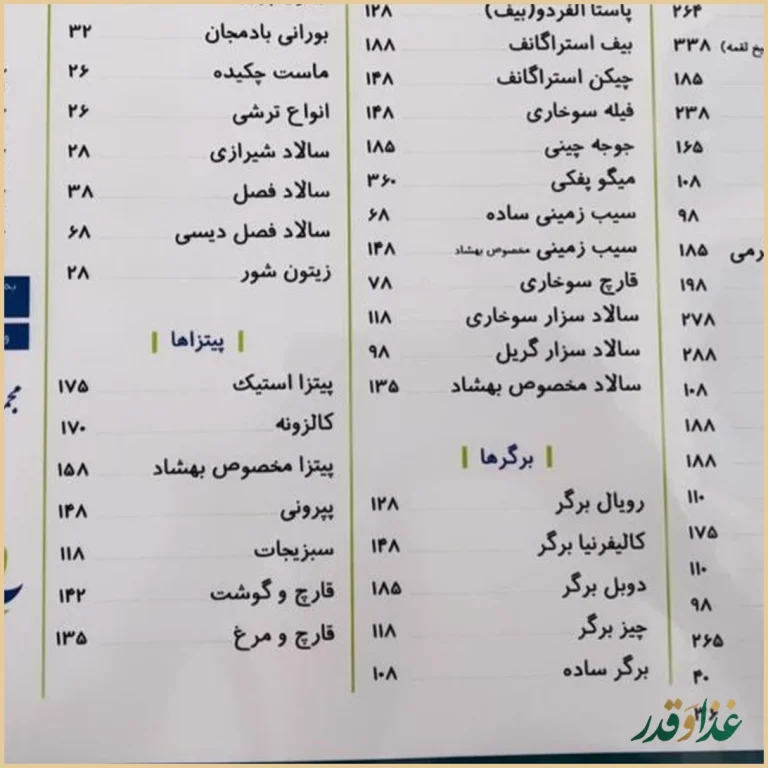 ۲۶۴
یخ لقمه) ۳۳۸
۱۸۵
۲۳۸
۱۶۵
۱۰۸
۹۸
۱۸۵
۱۹۸
۲۷۸
۲۸۸
۱۰۸
۱۸۸
۱۸۸
۱۱۰
۱۷۵
۱۱۰
۹۸
۲۶۵
۴۰
پاستا آلفردو(بیف) ۱۲۸
بیف استراگانف ۱۸۸
چیکن استراگانف ۱۴۸
فیله سوخاری ۱۴۸
جوجه چینی ۱۸۵
میگو پفکی ۳۶۰
سیب زمینی ساده ۶۸
سیب زمینی مخصوص بهشاد ۱۴۸
قارچ سوخاری ۷۸
سالاد سزار سوخاری ۱۱۸
سالاد سزار گریل ۹۸
سالاد مخصوص بهشاد ۱۳۵
برگرها
رویال برگر ۱۲۸
کالیفرنیا برگر ۱۴۸
دوبل برگر ۱۸۵
چیز برگر ۱۱۸
برگر ساده ۱۰۸
بورانی بادمجان ۳۲
ماست چکیده ۲۶
انواع ترشی ۲۶
سالاد شیرازی ۲۸
سالاد فصل ۳۸
سالاد فصل دیسی ۶۸
زیتون شور ۲۸
پیتزاها
پیتزا استیک ۱۷۵
کالزونه ۱۷۰
پیتزا مخصوص بهشاد ۱۵۸
پپرونی ۱۴۸
سبزیجات ۱۱۸
قارچ و گوشت ۱۴۲
قارچ و مرغ ۱۳۵
غذا و قدر